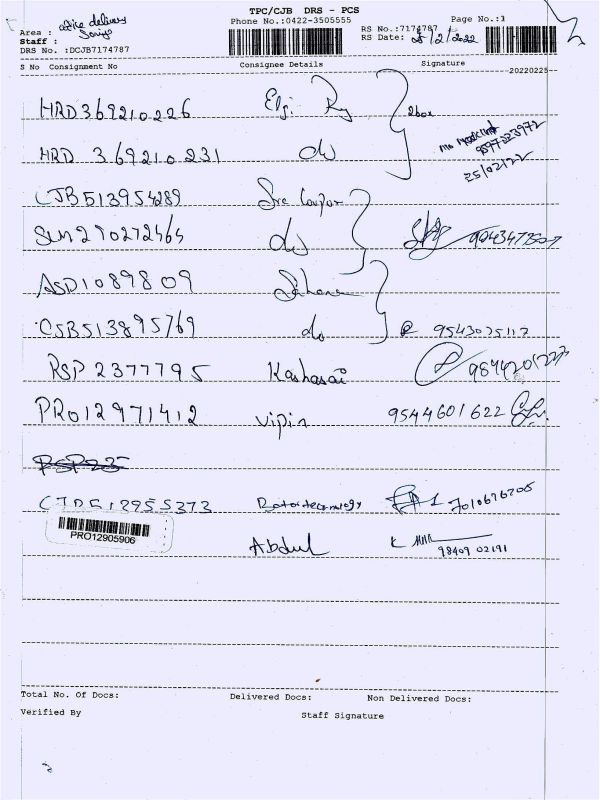 TPC/CJB DRS - PCS
Phone No.:0422-3505555
Page No.:1
office delivery
Area :
Staff :
DRS No. :DCJB7174787
RS No.:7174787
RS Date: 25/2/2022
S No Consignment No Consignee Details Signature
20220225
HRD369210226 Elgi 2box
HRD 369210231 do
9597223972
25/02/22
CJB513954289 Sre
SLM290272464 do
ASD1089809
CJB513895769 do 9543025112
RSP 2377795 Kashasai
PRO12971412 vipin 9544601622
CJB512955373 7010676705
PRO12905906
Abdul 98409 02191
Total No. Of Docs: Delivered Docs: Non Delivered Docs:
Verified By Staff Signature